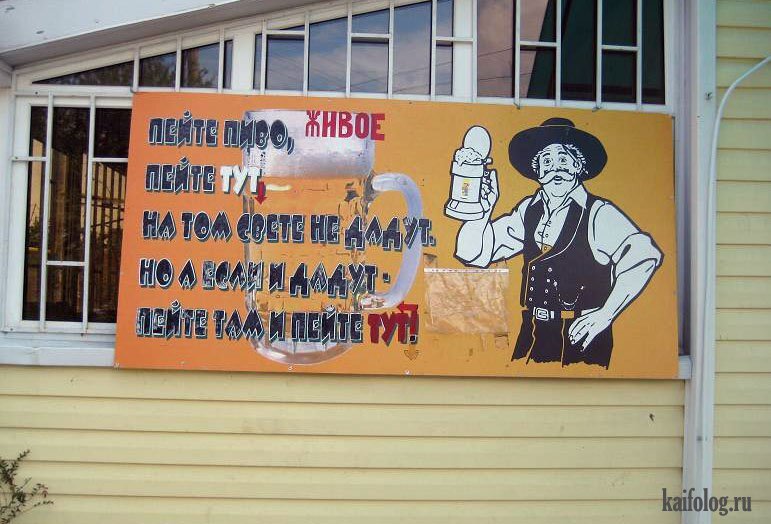 ЖИВОЕ
ПЕЙТЕ ПИВО,
ПЕЙТЕ ТУТ -
НА ТОМ СВЕТЕ НЕ ДАДУТ.
НО А ЕСЛИ И ДАДУТ -
ПЕЙТЕ ТАМ И ПЕЙТЕ ТУТ!
kaifolog.ru